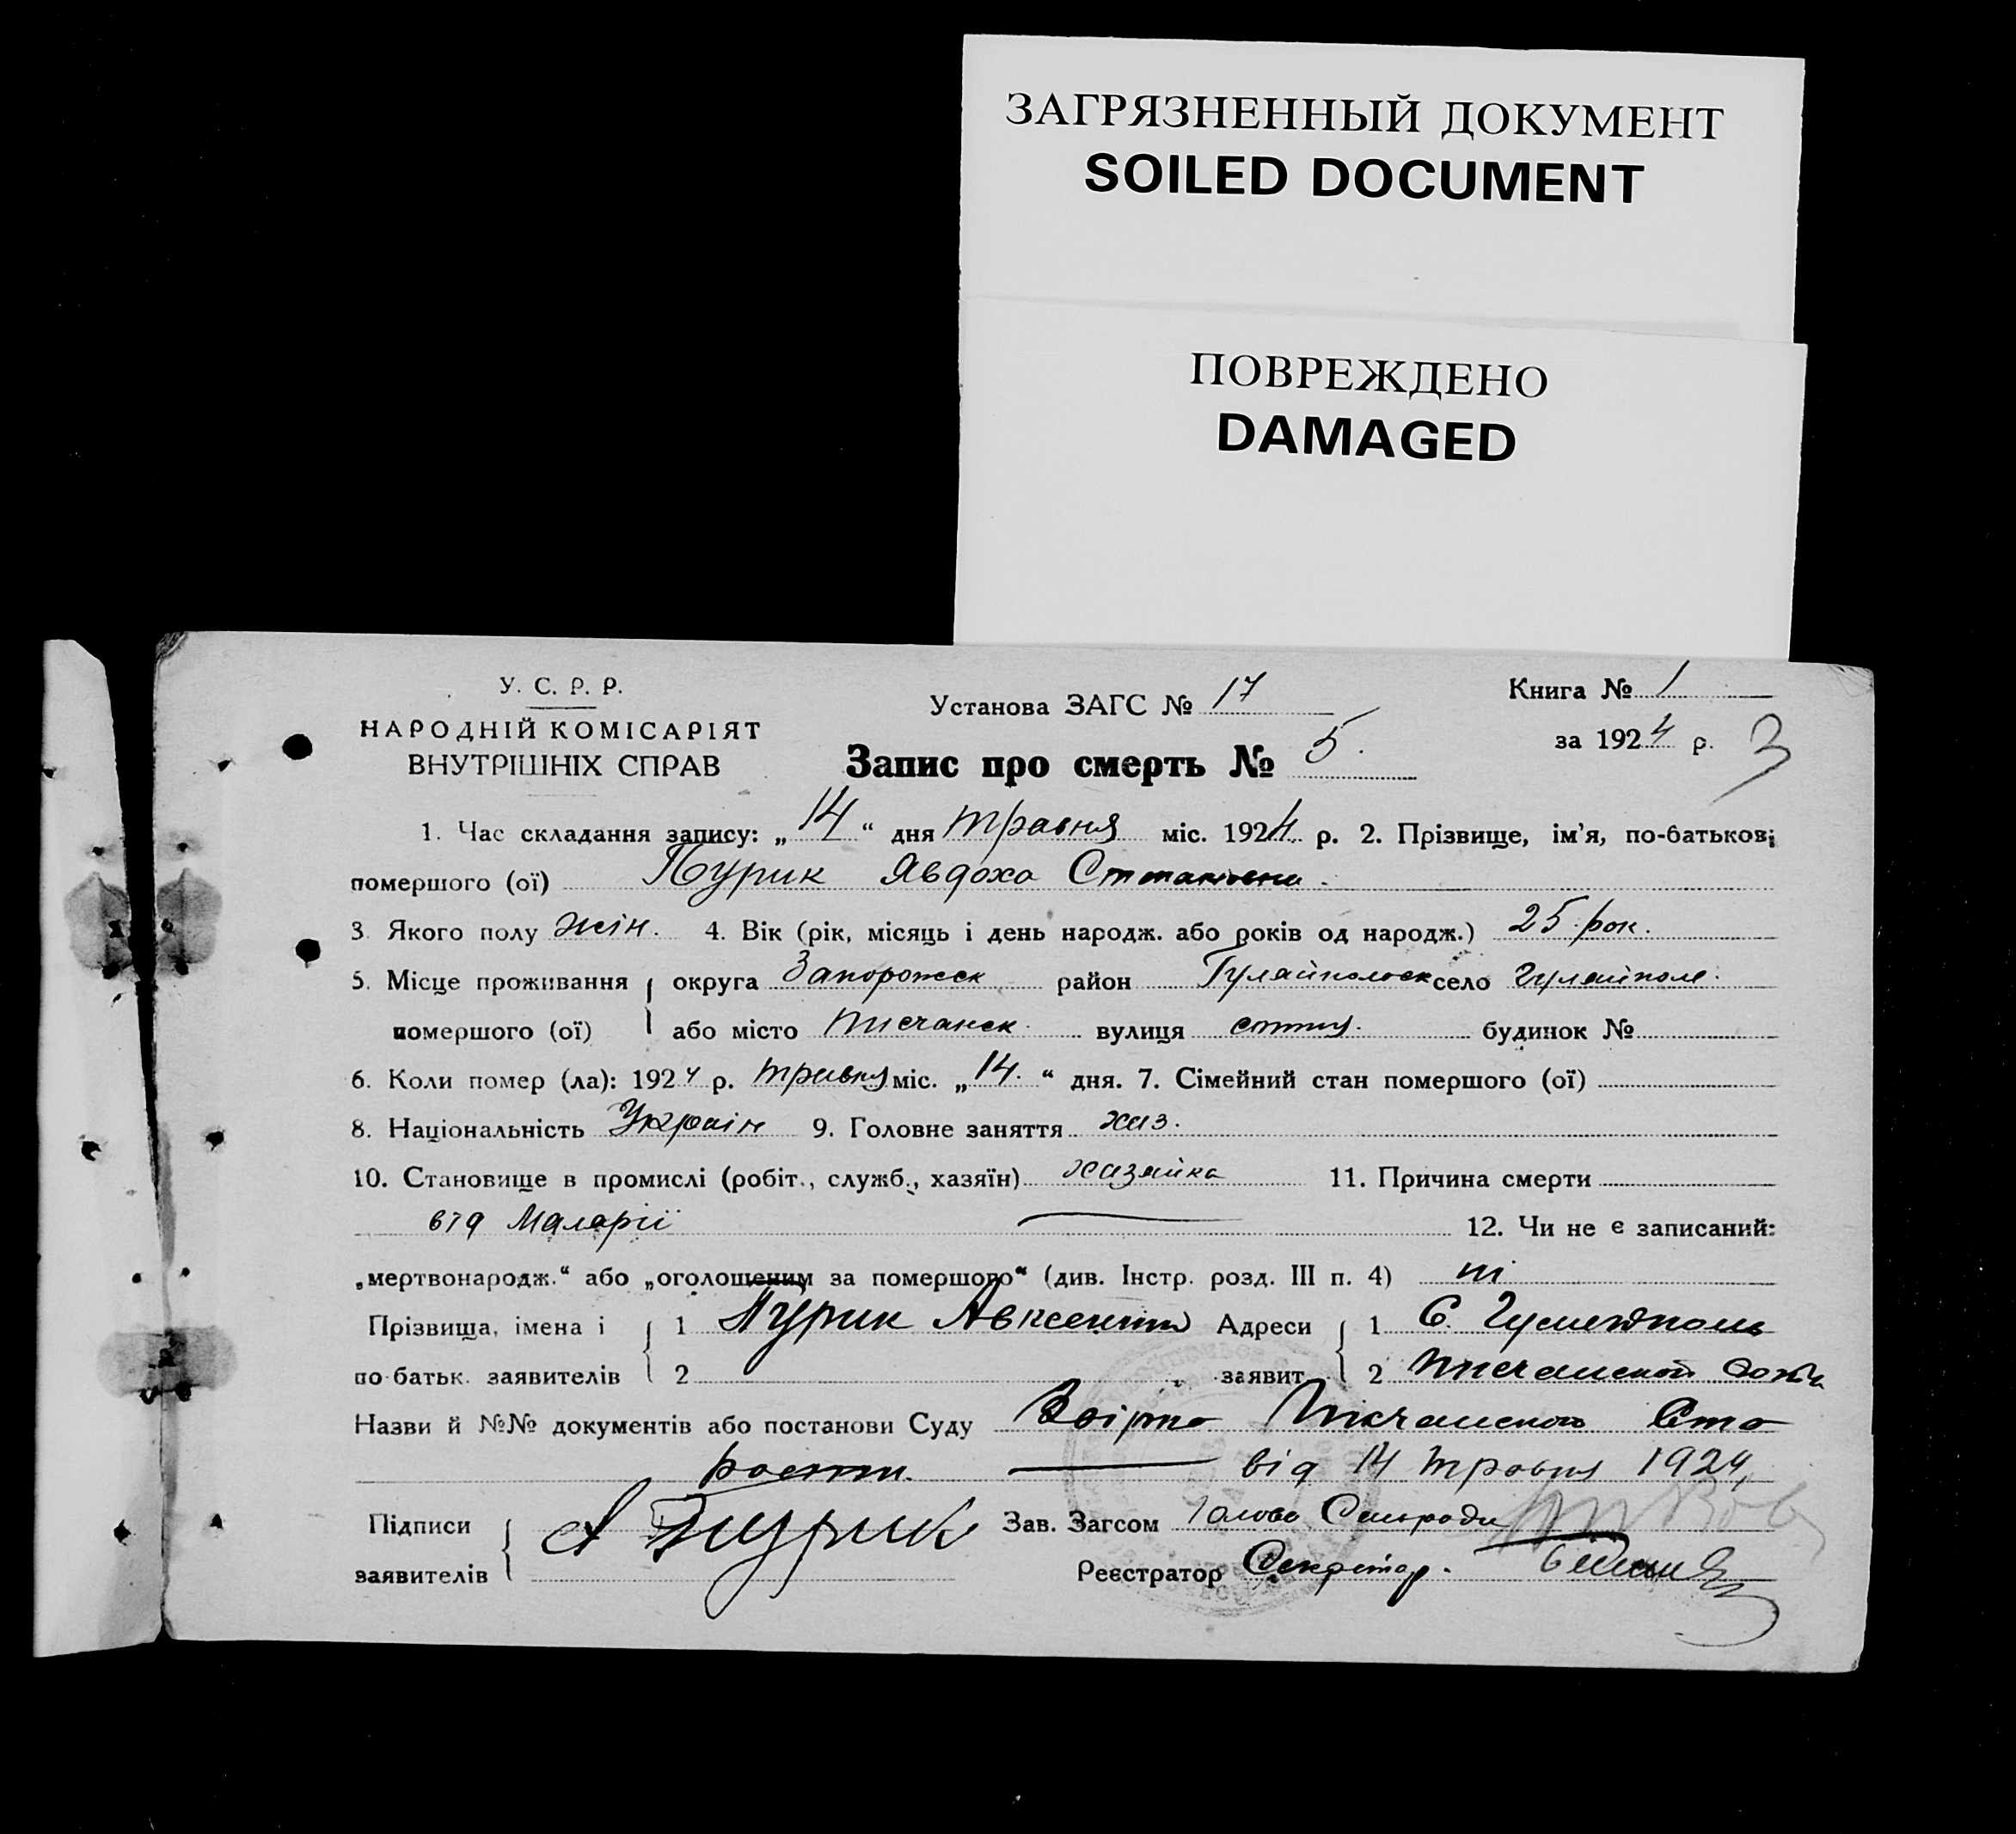 ЗАГРЯЗНЕННЫЙ ДОКУМЕНТ
SOILED DOCUMENT
ПОВРЕЖДЕНО
DAMAGED
У. С. Р. Р.
НАРОДНІЙ КОМІСАРІЯТ
ВНУТРІШНІХ СПРАВ
Установа ЗАГС № 17
Книга № 1
за 1924 р. 3
Запис про смерть № 5.
1. Час складання запису: „14“ дня травня міс. 1924 р. 2. Прізвище, ім'я, по-батькові
помершого (ої) Пурик Явдоха Степановна.
3. Якого полу жін. 4. Вік (рік, місяць і день народж. або років од народж.) 25 рок.
5. Місце проживання округа Запорожск район Гуляйпольск село Гуляйполе.
помершого (ої) або місто Писчанск. вулиця сотня. будинок №
6. Коли помер (ла): 1924 р. травня міс. „14.“ дня. 7. Сімейний стан помершого (ої)
8. Національність Україн 9. Головне заняття хаз.
10. Становище в промислі (робіт., служб., хазяїн) хазяйка 11. Причина смерти
від Малярії 12. Чи не є записаний:
„мертвонародж.“ або „оголошеним за помершого“ (див. Інстр. розд. III п. 4) ні
Прізвища, імена і 1 Пурик Авксентий Адреси 1 С. Гуляйполь
по-батьк. заявителів 2 заявит. 2 Писчанской сотні
Назви й №№ документів або постанови Суду Писчанского Ста
рости. від 14 травня 1924,
Підписи А Пурик Зав. Загсом Голова Сельради
заявителів Реєстратор Секретар.